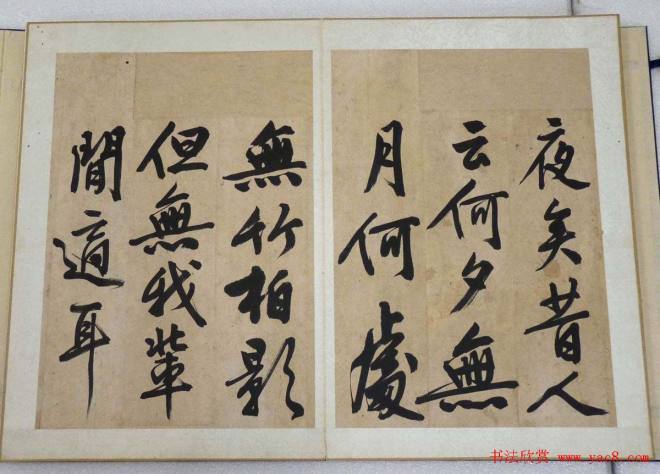 夜矣昔人
云何夕無
月何處
無竹柏影
但無我輩
閒適耳
书法欣赏 www.yac8.com